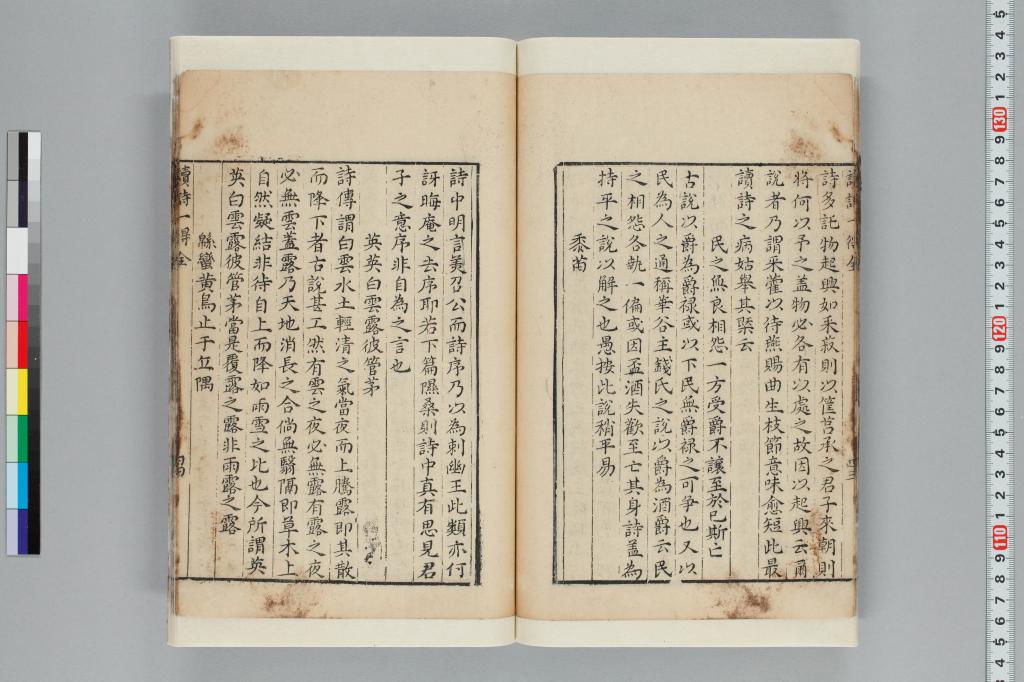 詩多託物起興如采菽則以筐筥承之君子來朝則
將何以予之蓋物必各有以處之故因以起興云爾
說者乃謂采藿以待燕賜曲生枝節意味愈短此最
讀詩之病姑舉其槩云
民之無良相怨一方受爵不讓至於已斯亡
古說以爵為爵祿或以下民無爵祿之可爭也又以
民為人之通稱華谷主錢氏之說以爵為酒爵云民
之相怨各執一偏或因盃酒失歡至亡其身詩蓋為
持平之說以解之也愚按此說稍平易
黍苗
詩中明言美召公而詩序乃以為刺幽王此類亦何
訝晦庵之去序耶若下篇隰桑則詩中真有思見君
子之意序非自為之言也
英英白雲露彼管茅
詩傳謂白雲水土輕清之氣當夜而上騰露即其散
而降下者古說甚工然有雲之夜必無露有露之夜
必無雲蓋露乃天地消長之合倘無翳隔即草木上
自然凝結非待自上而降如雨雪之比也今所謂英
英白雲露彼管茅當是覆露之露非雨露之露
緜蠻黄鳥止于丘隅
讀詩一得全